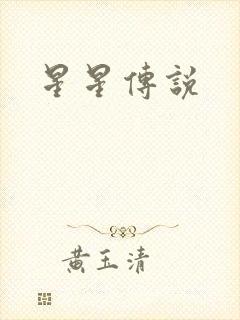 星星傳說
黃玉清